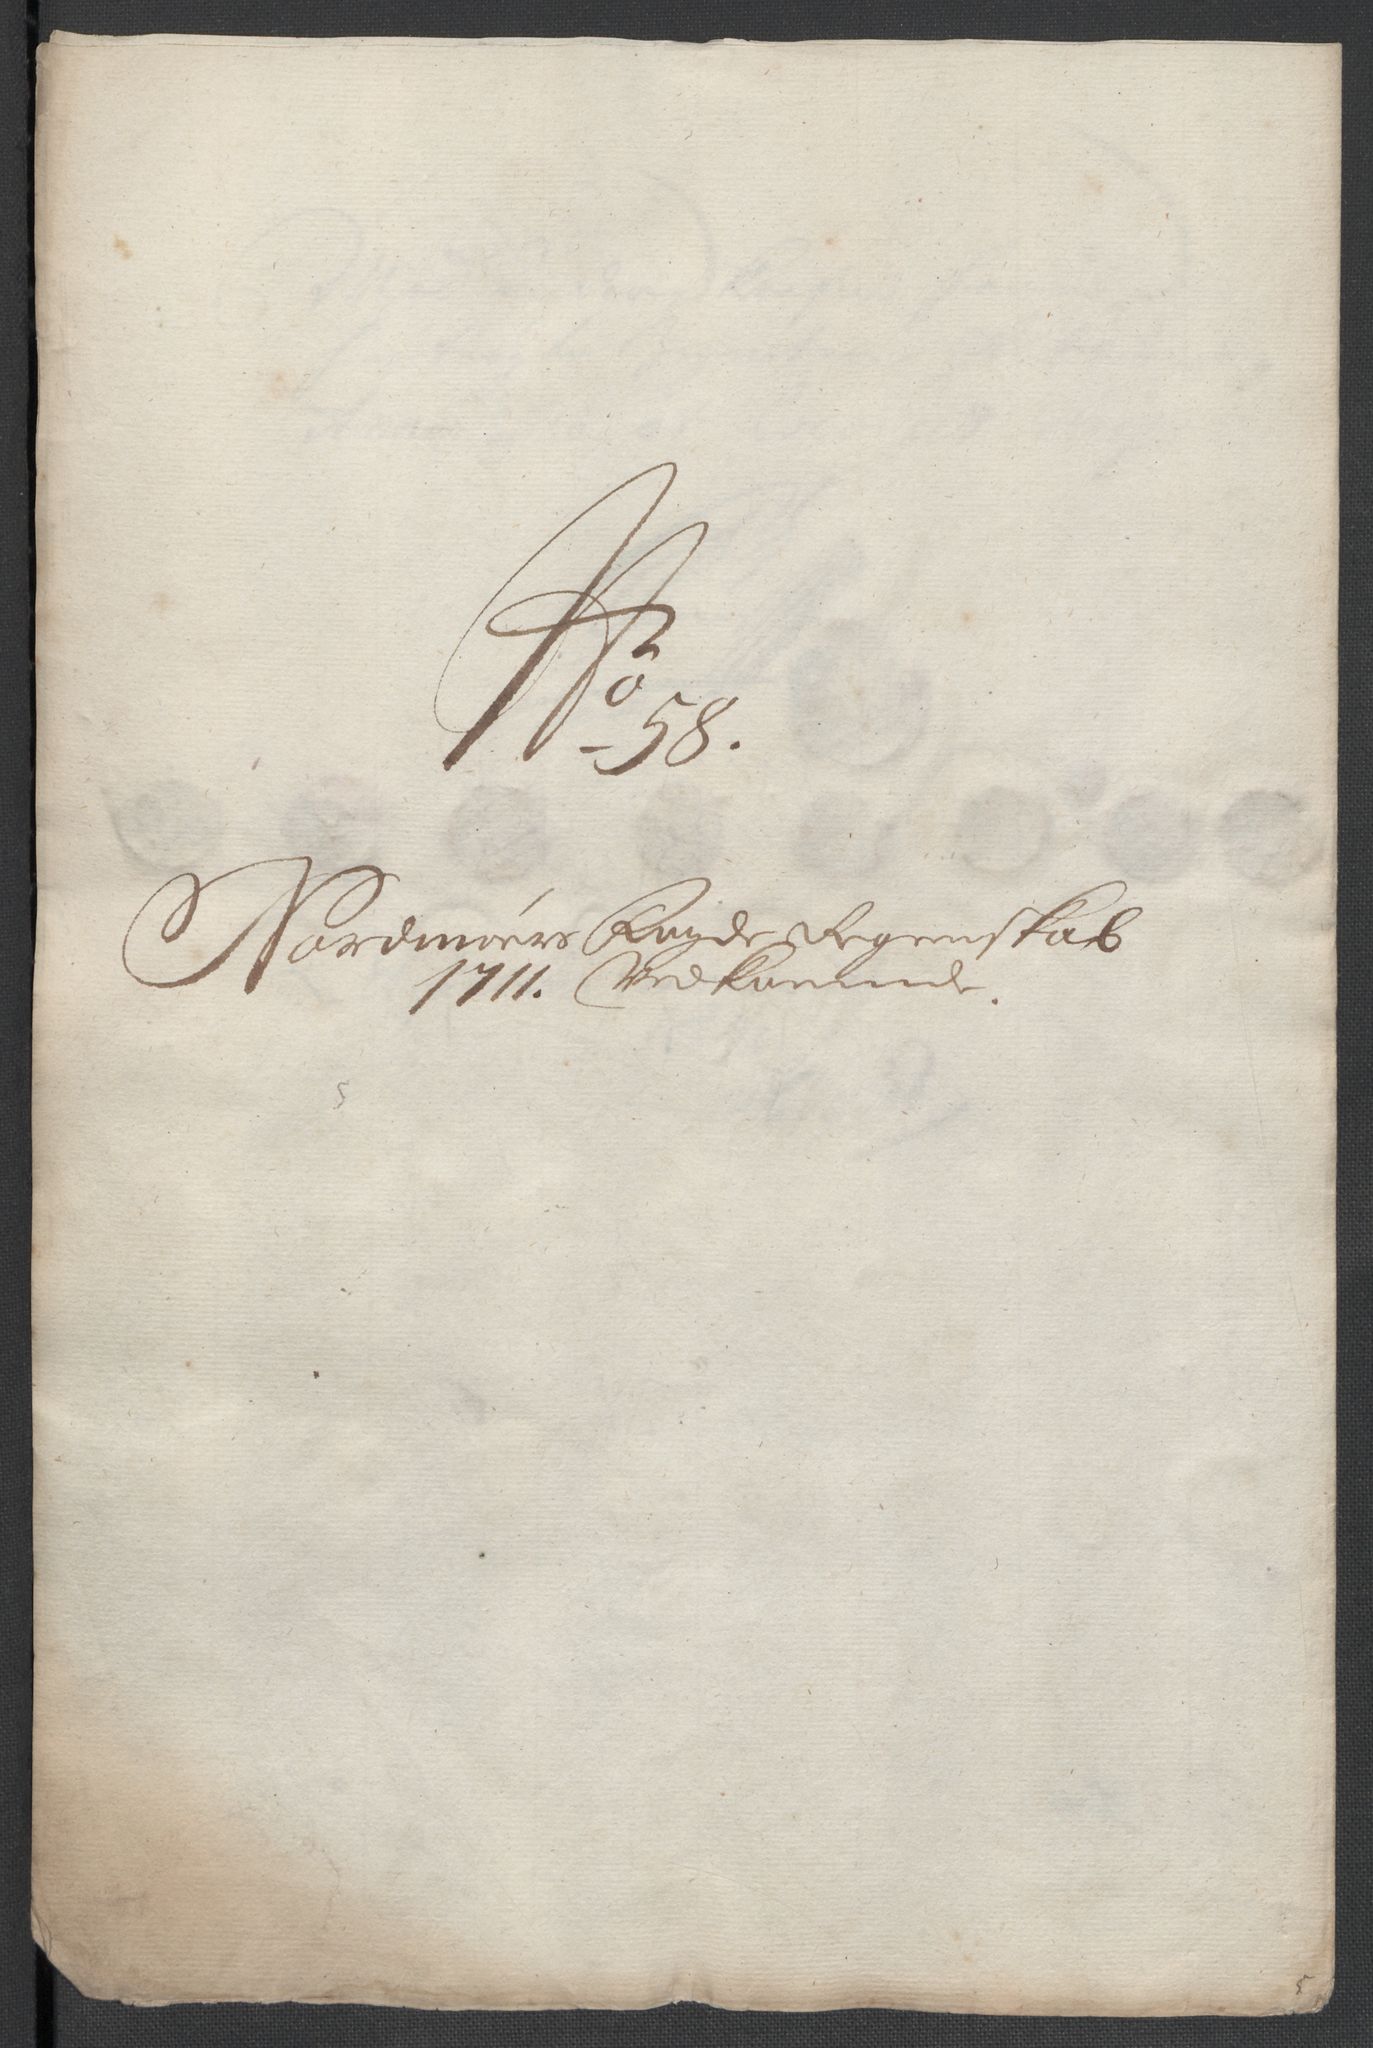 No 58.
Nordmørs Fogde Regenskab
1711. Vedkommende.
5
5